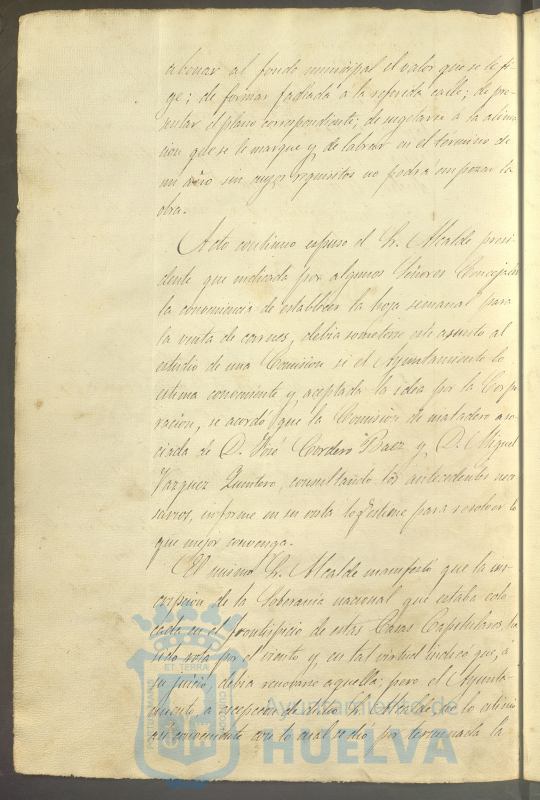 abonar al fondo municipal el valor que se le fi-
ge; de formar fachada á la referida calle; de pre-
sentar el plano correspondiente; de sugetarse á la alinea
cion que se le marque y de labrar en el término de
un año sin cuyos requisitos no podrá empezar la
obra.
Acto continuo espuso el Sr. Alcalde presi
dente que indicada por algunos Señores Concejales
la conveniencia de establecer la hoja semanal para
la venta de carnes, debia someterse este asunto al
estudio de una Comision si el Ayuntamiento lo
estima conveniente y aceptada la idea por la Corpo
racion, se acordó que la Comision de matadero aso
ciada de D. José Cordero Baez y D. Miguel
Vazquez Quintero, consultando los antecedentes nece
sarios, informe en su vista lo qe estime para resolver lo
que mejor convenga.
El mismo Sr. Alcalde manifestó que la ins
cripcion de la Soberanía nacional que estaba colo
cada en el frontispicio de estas Casas Capitulares, ha
sido rota por el viento y en tal virtud indicó que, á
su juicio, debia renovarse aquella; pero el Ayunta-
miento á escepcion de dicho Sr. Alcalde no lo estimó
asi conveniente con lo cual se dió por terminada la
ET TERRA
Ayuntamiento de
HUELVA